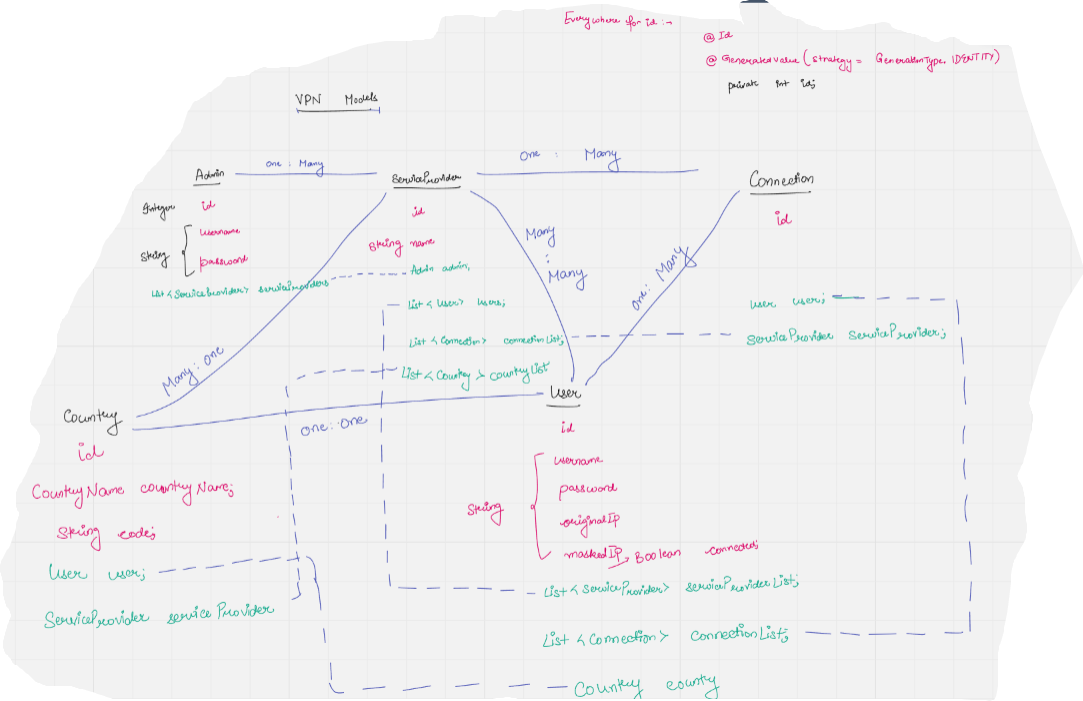 Everywhere for id :→
@ Id
@ GeneratedValue (strategy = GenerationType. IDENTITY)
private int id;
VPN Models
one : Many
One : Many
Admin
ServiceProvider
Connection
Integer id
id
id
String
username
password
String name
List <ServiceProvider> serviceProviders
Admin admin;
List <User> users;
List <Connection> connectionList;
List <Country> countryList
Many : Many
one : Many
User user;
ServiceProvider serviceProvider;
Many : one
one : one
Country
id
CountryName countryName;
String code;
User user;
ServiceProvider serviceProvider
User
id
String
username
password
originalIP
maskedIP, Boolean connected;
List <ServiceProvider> serviceProviderList;
List <Connection> connectionList;
Country county